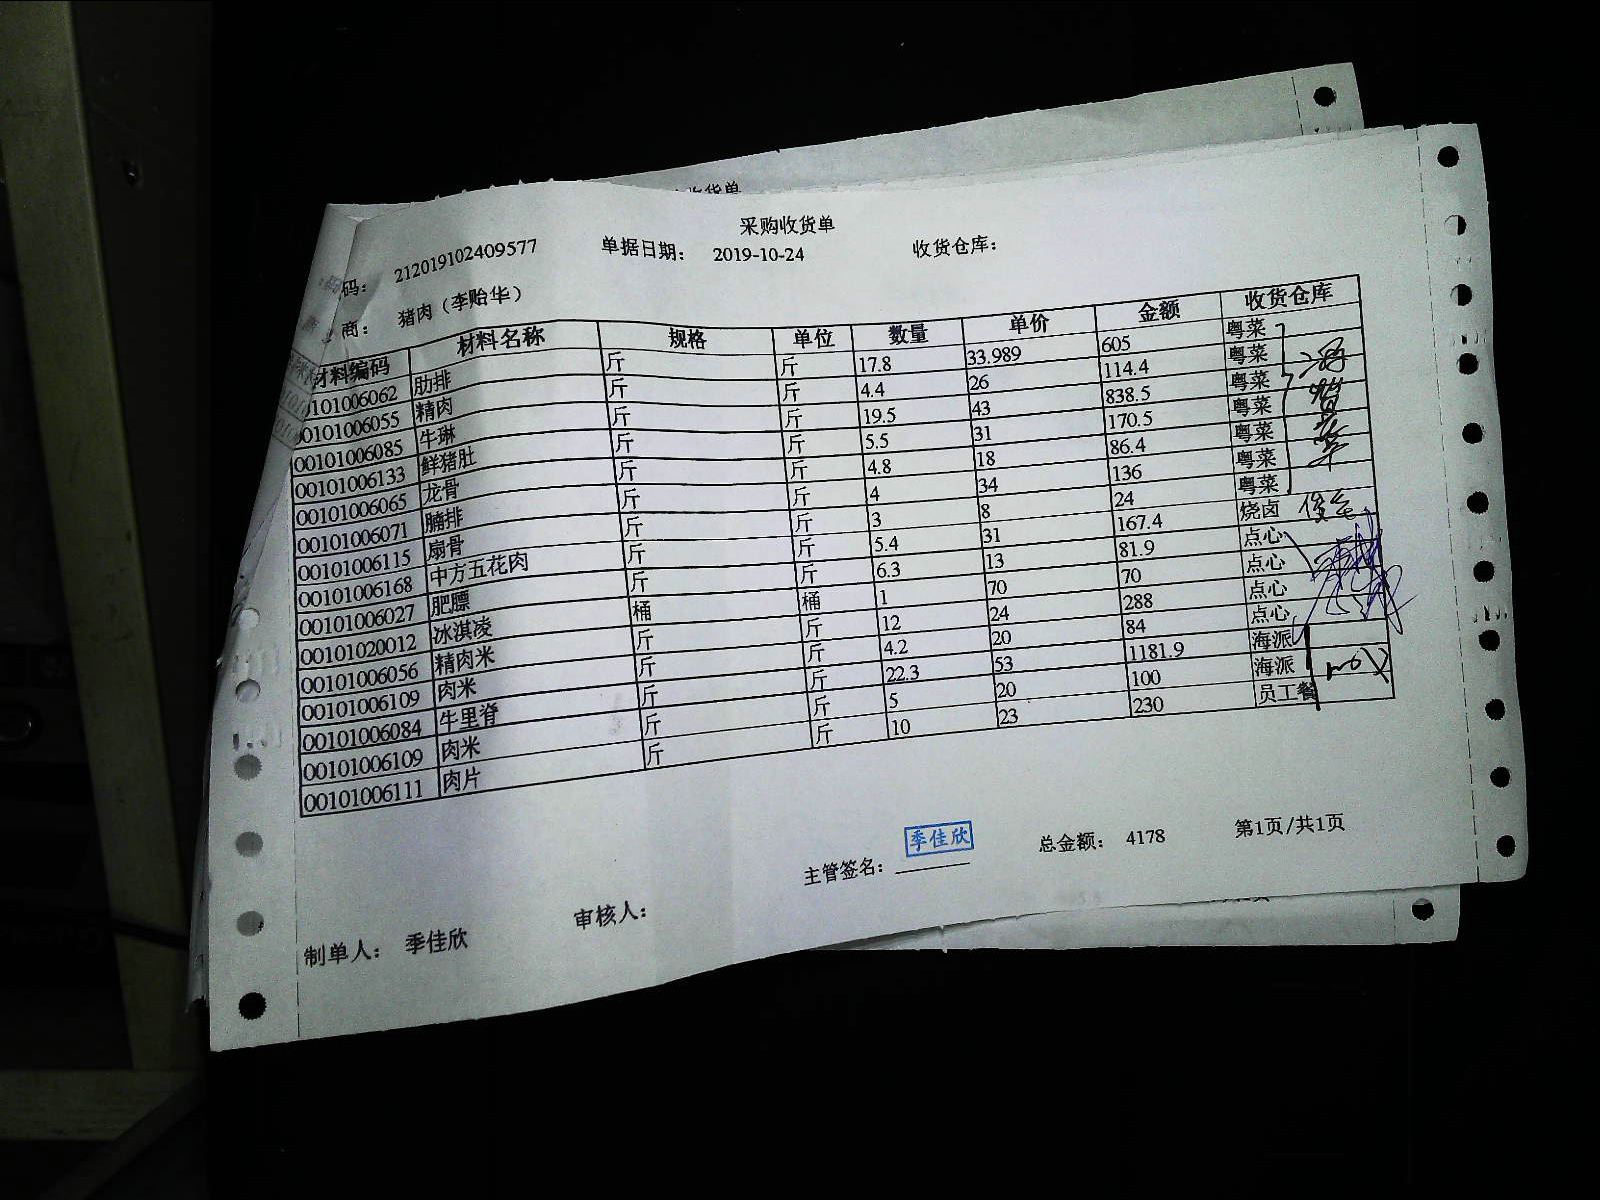 采购收货单
码： 212019102409577 单据日期： 2019-10-24 收货仓库：
商： 猪肉（李贻华）
材料编码 材料名称 规格 单位 数量 单价 金额 收货仓库
00101006062 肋排 斤 斤 17.8 33.989 605 粤菜
00101006055 精肉 斤 斤 4.4 26 114.4 粤菜
00101006085 牛琳 斤 斤 19.5 43 838.5 粤菜
00101006133 鲜猪肚 斤 斤 5.5 31 170.5 粤菜
00101006065 龙骨 斤 斤 4.8 18 86.4 粤菜
00101006071 腩排 斤 斤 4 34 136 粤菜
00101006115 扇骨 斤 斤 3 8 24 粤菜
00101006168 中方五花肉 斤 斤 5.4 31 167.4 烧卤
00101006027 肥膘 斤 斤 6.3 13 81.9 点心
00101020012 冰淇凌 桶 桶 1 70 70 点心
00101006056 精肉米 斤 斤 12 24 288 点心
00101006109 肉米 斤 斤 4.2 20 84 点心
00101006084 牛里脊 斤 斤 22.3 53 1181.9 海派
00101006109 肉米 斤 斤 5 20 100 海派
00101006111 肉片 斤 斤 10 23 230 员工餐
主管签名： 季佳欣 总金额： 4178 第1页/共1页
制单人： 季佳欣 审核人：